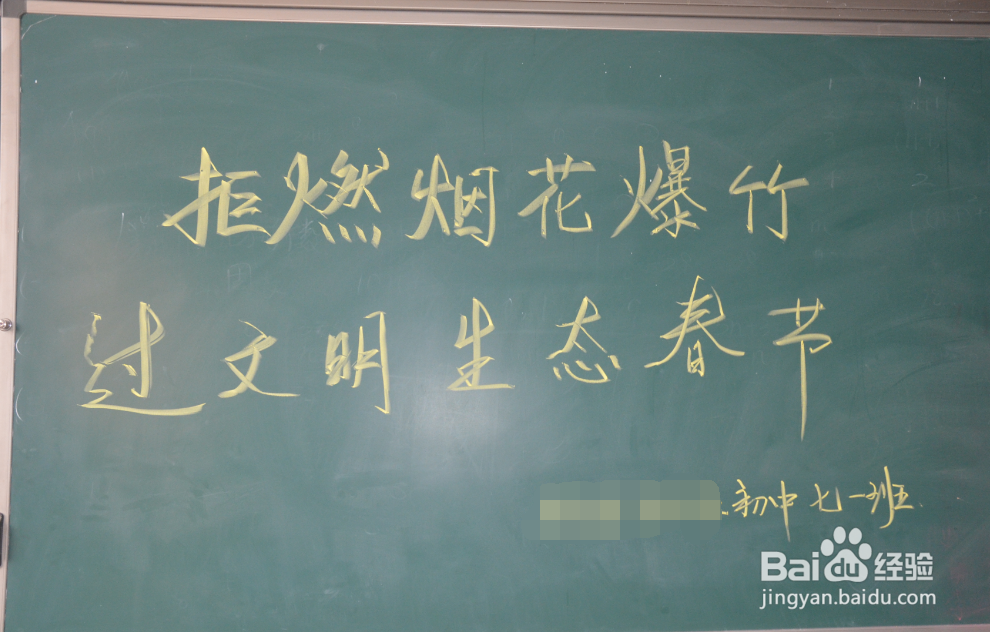 拒燃烟花爆竹
过文明生态春节
初中七一班
Baidu经验
jingyan.baidu.com